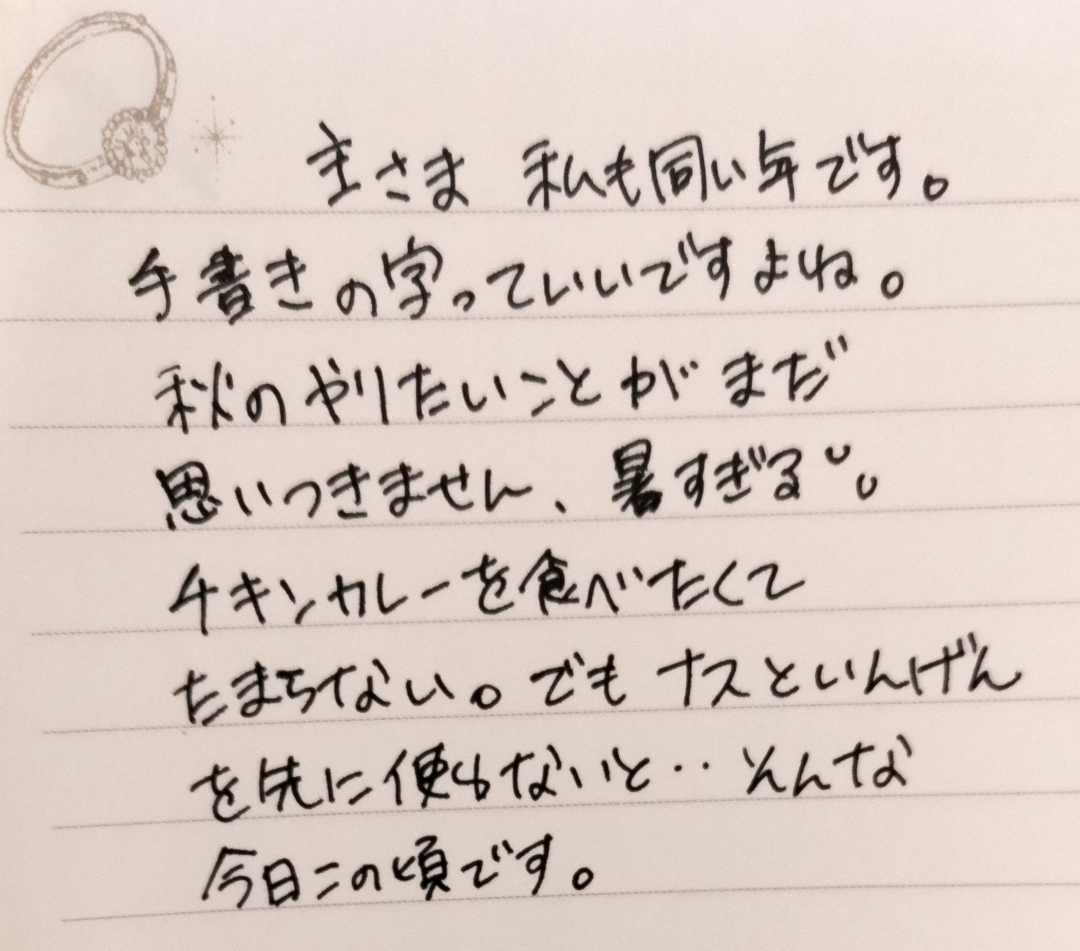 主さま 私も同い年です。
手書きの字っていいですよね。
秋のやりたいことがまだ
思いつきません、暑すぎる
チキンカレーを食べたくて
たまらない。でもナスといんげん
を先に使わないと‥そんな
今日この頃です。